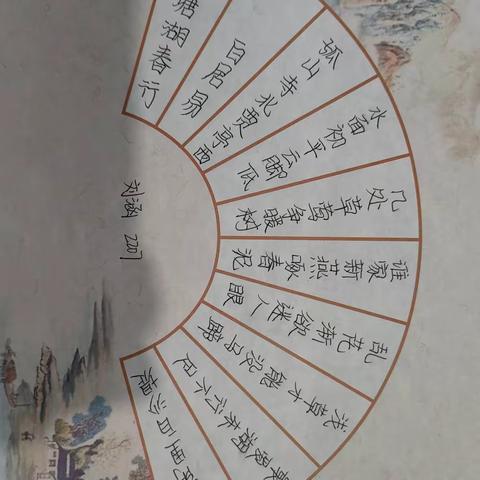 塘湖春行
白居易
孤山寺北贾亭西
水面初平云脚低
几处草莺争暖树
谁家新燕啄春泥
乱花渐欲迷人眼
浅草才能没马蹄
爱湖东行不足
阴里白沙堤
刘涵 2207